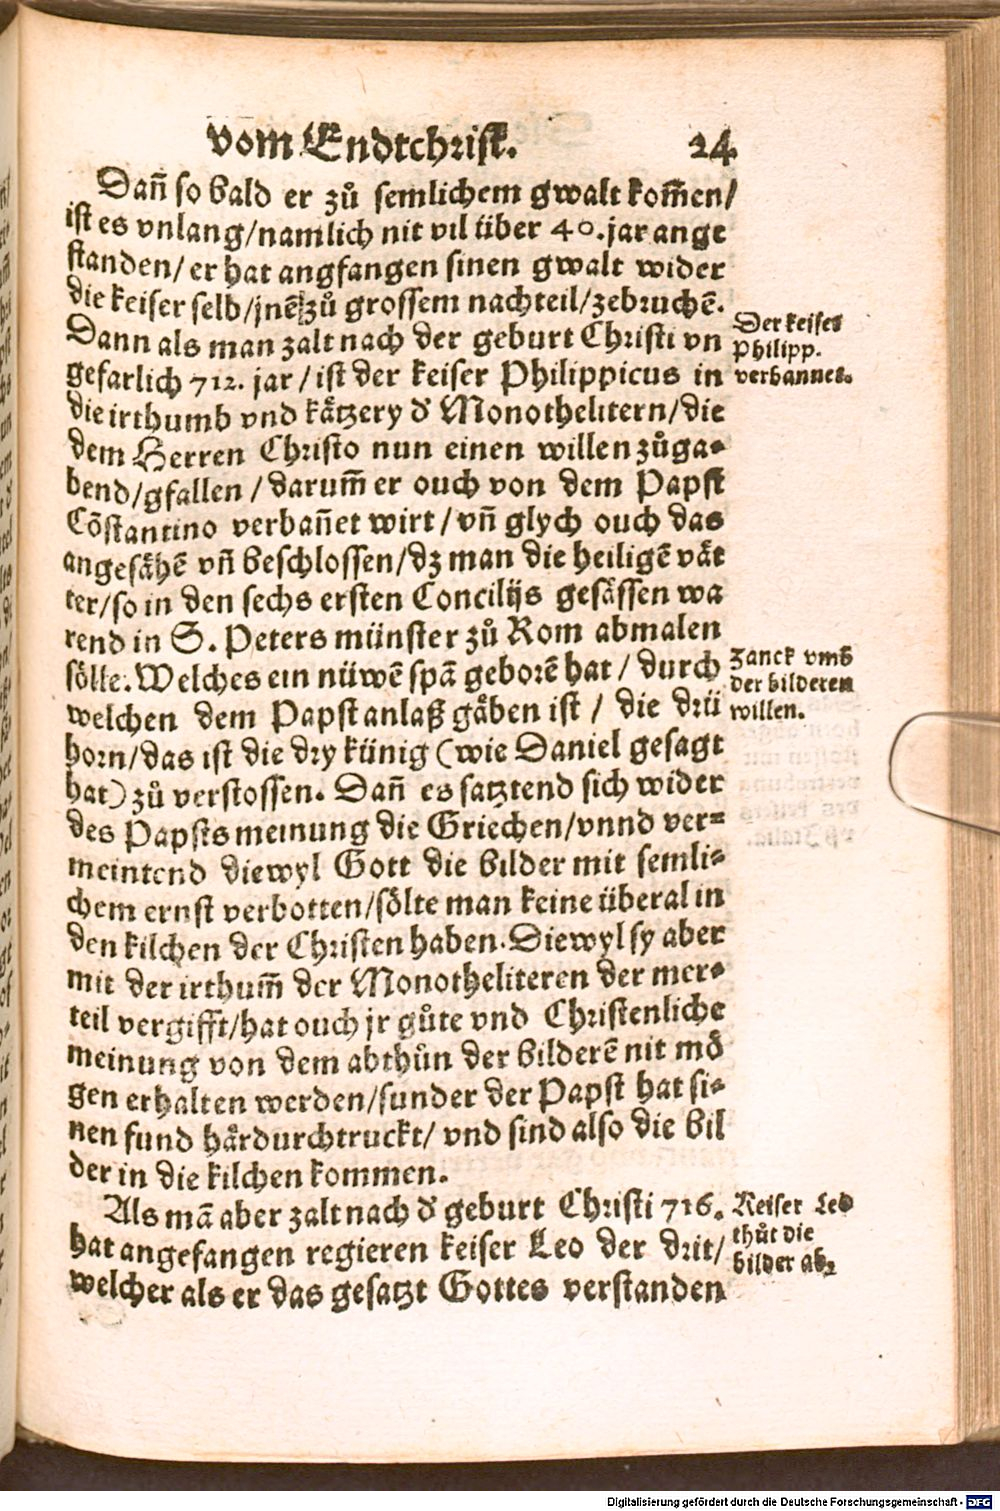 vom Endtchrist. 24
Dañ so bald er zů semlichem gwalt kom̃en/
ist es vnlang/namlich nit vil über 40.jar ange
standen/er hat angfangen sinen gwalt wider
die keiser selb/jnẽ zů grossem nachteil/zebruchẽ.
Dann als man zalt nach der geburt Christi vn
gefarlich 712. jar/ist der keiser Philippicus in
die irthumb vnd kåtzery d' Monothelitern/die
dem Herren Christo nun einen willen zůga⸗
bend/gfallen/darum̃ er ouch von dem Papst
Cõstantino verbañet wirt/vñ glych ouch das
angesåhẽ vñ beschlossen/dz man die heiligẽ våt
ter/so in den sechs ersten Concilijs gesåssen wa
rend in S. Peters münster zů Rom abmalen
sölle. Welches ein nüwẽ spã geborẽ hat/durch
welchen dem Papst anlaß gåben ist/die drü
horn/das ist die dry künig (wie Daniel gesagt
hat) zů verstossen. Dañ es satztend sich wider
des Papsts meinung die Griechen/vnnd ver⸗
meintend diewyl Gott die bilder mit semli⸗
chem ernst verbotten/sölte man keine überal in
den kilchen der Christen haben. Diewyl sy aber
mit der irthum̃ der Monotheliteren der mer⸗
teil vergifft/hat ouch jr gůte vnd Christenliche
meinung von dem abthůn der bilderẽ nit mö
gen erhalten werden/sunder der Papst hat si⸗
nen fund hårdurchtruckt/vnd sind also die bil
der in die kilchen kommen.
Als mã aber zalt nach d' geburt Christi 716.
hat angefangen regieren keiser Leo der drit/
welcher als er das gesatzt Gottes verstanden
Der keiser
Philipp.
verbannet.
Zanck vmb
der bilderen
willen.
Keiser Leo
thůt die
bilder ab.
Digitalisierung gefördert durch die Deutsche Forschungsgemeinschaft - DFG